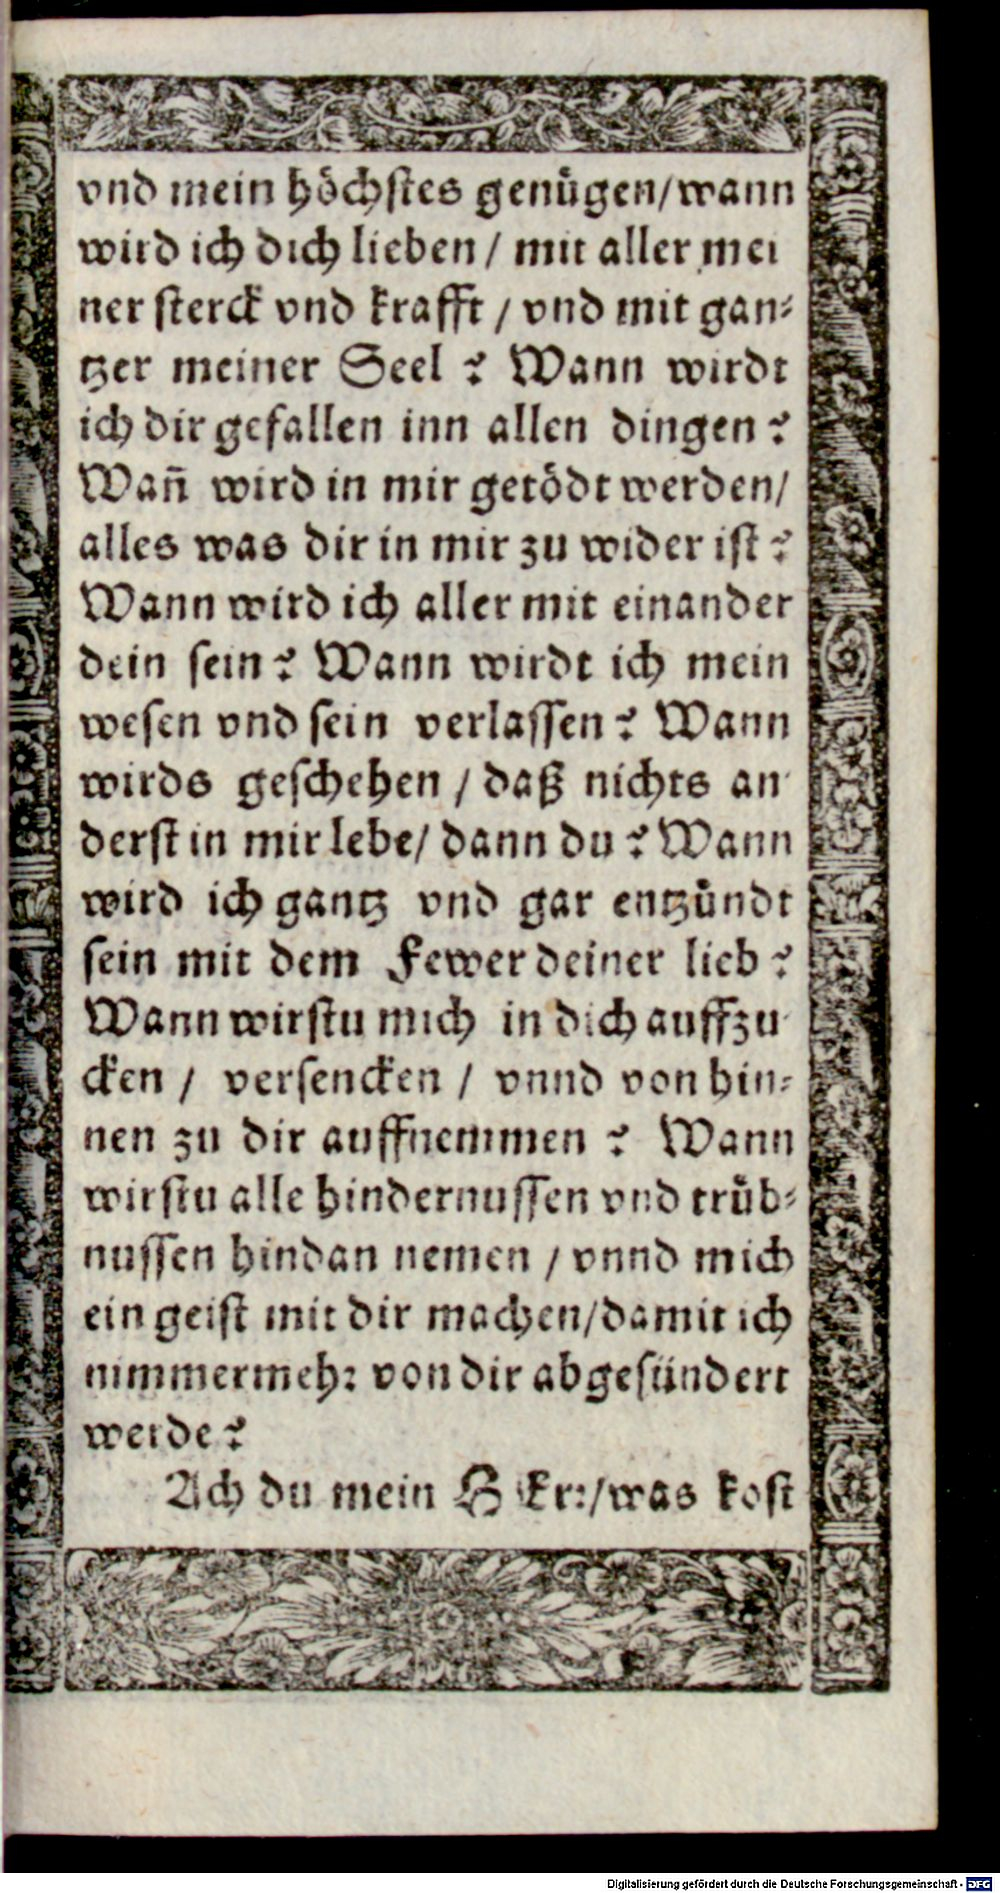 vnd mein höchſtes genügen/wann
wird ich dich lieben / mit aller mei
ner ſterck vnd krafft / vnd mit gan⸗
tzer meiner Seel ? Wann wirdt
ich dir gefallen inn allen dingen ?
Wañ wird in mir getödt werden/
alles was dir in mir zu wider iſt ?
Wann wird ich aller mit einander
dein ſein ? Wann wirdt ich mein
weſen vnd ſein verlaſſen ? Wann
wirds geſchehen / daß nichts an⸗
derſt in mir lebe/ dann du ? Wann
wird ich gantz vnd gar entzündt
ſein mit dem Fewer deiner lieb ?
Wann wirſtu mich in dich auffzu⸗
cken / verſencken / vnnd von hin⸗
nen zu dir auffnemmen ? Wann
wirſtu alle hindernuſſen vnd trüb⸗
nuſſen hindan nemen / vnnd mich
ein geiſt mit dir machen/damit ich
nimmermehr von dir abgeſündert
werde ?
Ach du mein HErr/was koſt
Digitalisierung gefördert durch die Deutsche Forschungsgemeinschaft - DFG